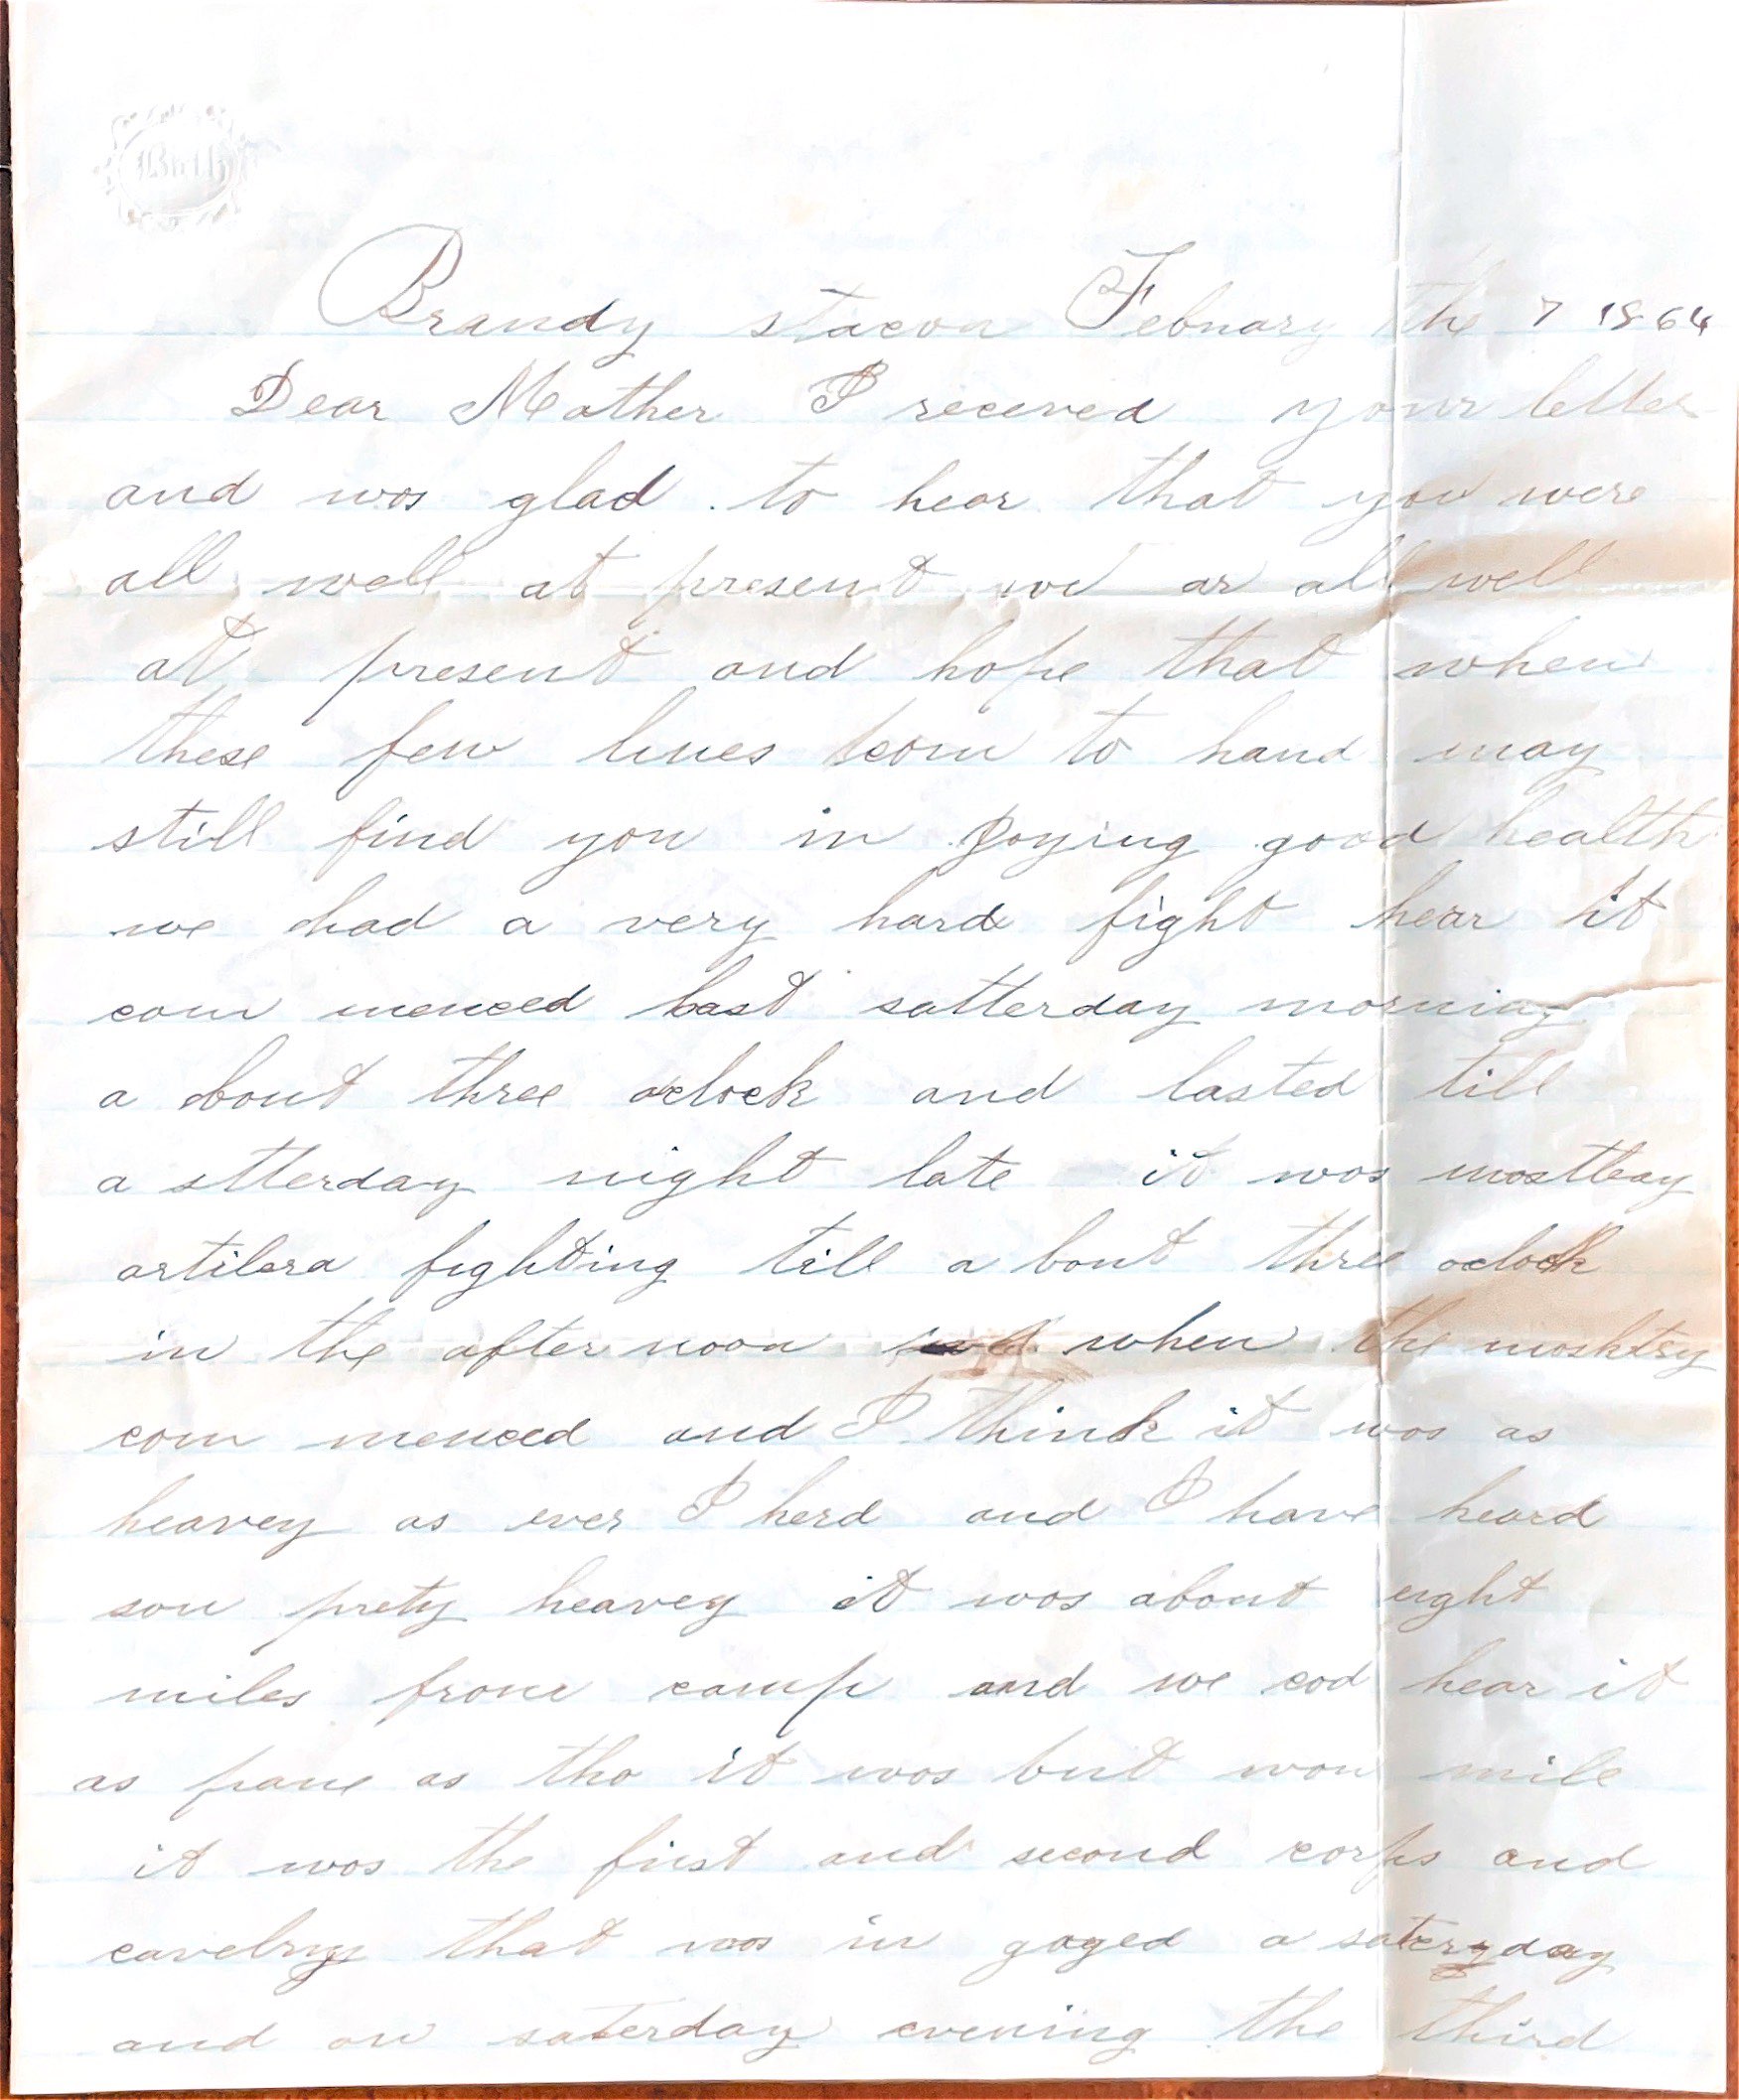 Bath
Brandy stacon Febuary the 7 1864
Dear Mother I receved your letter
and was glad to hear that you were
all well at present we ar all well
at present and hope that when
these few lines com to hand may
still find you in joying good health
we had a very hard fight hear it
com menced last satterday morning
a bout three oclock and lasted till
a stterday night late it was mostleay
artilera fighting till a bout three oclock
in the after noon when the musktry
com menced and I think it was as
heavey as ever I herd and I have heard
som prety heavey it was about eight
miles from camp and we cod hear it
as pane as tho it was but won mile
it was the first and second corps and
cavelry that was in gaged a saterday
and on saterday evening the third